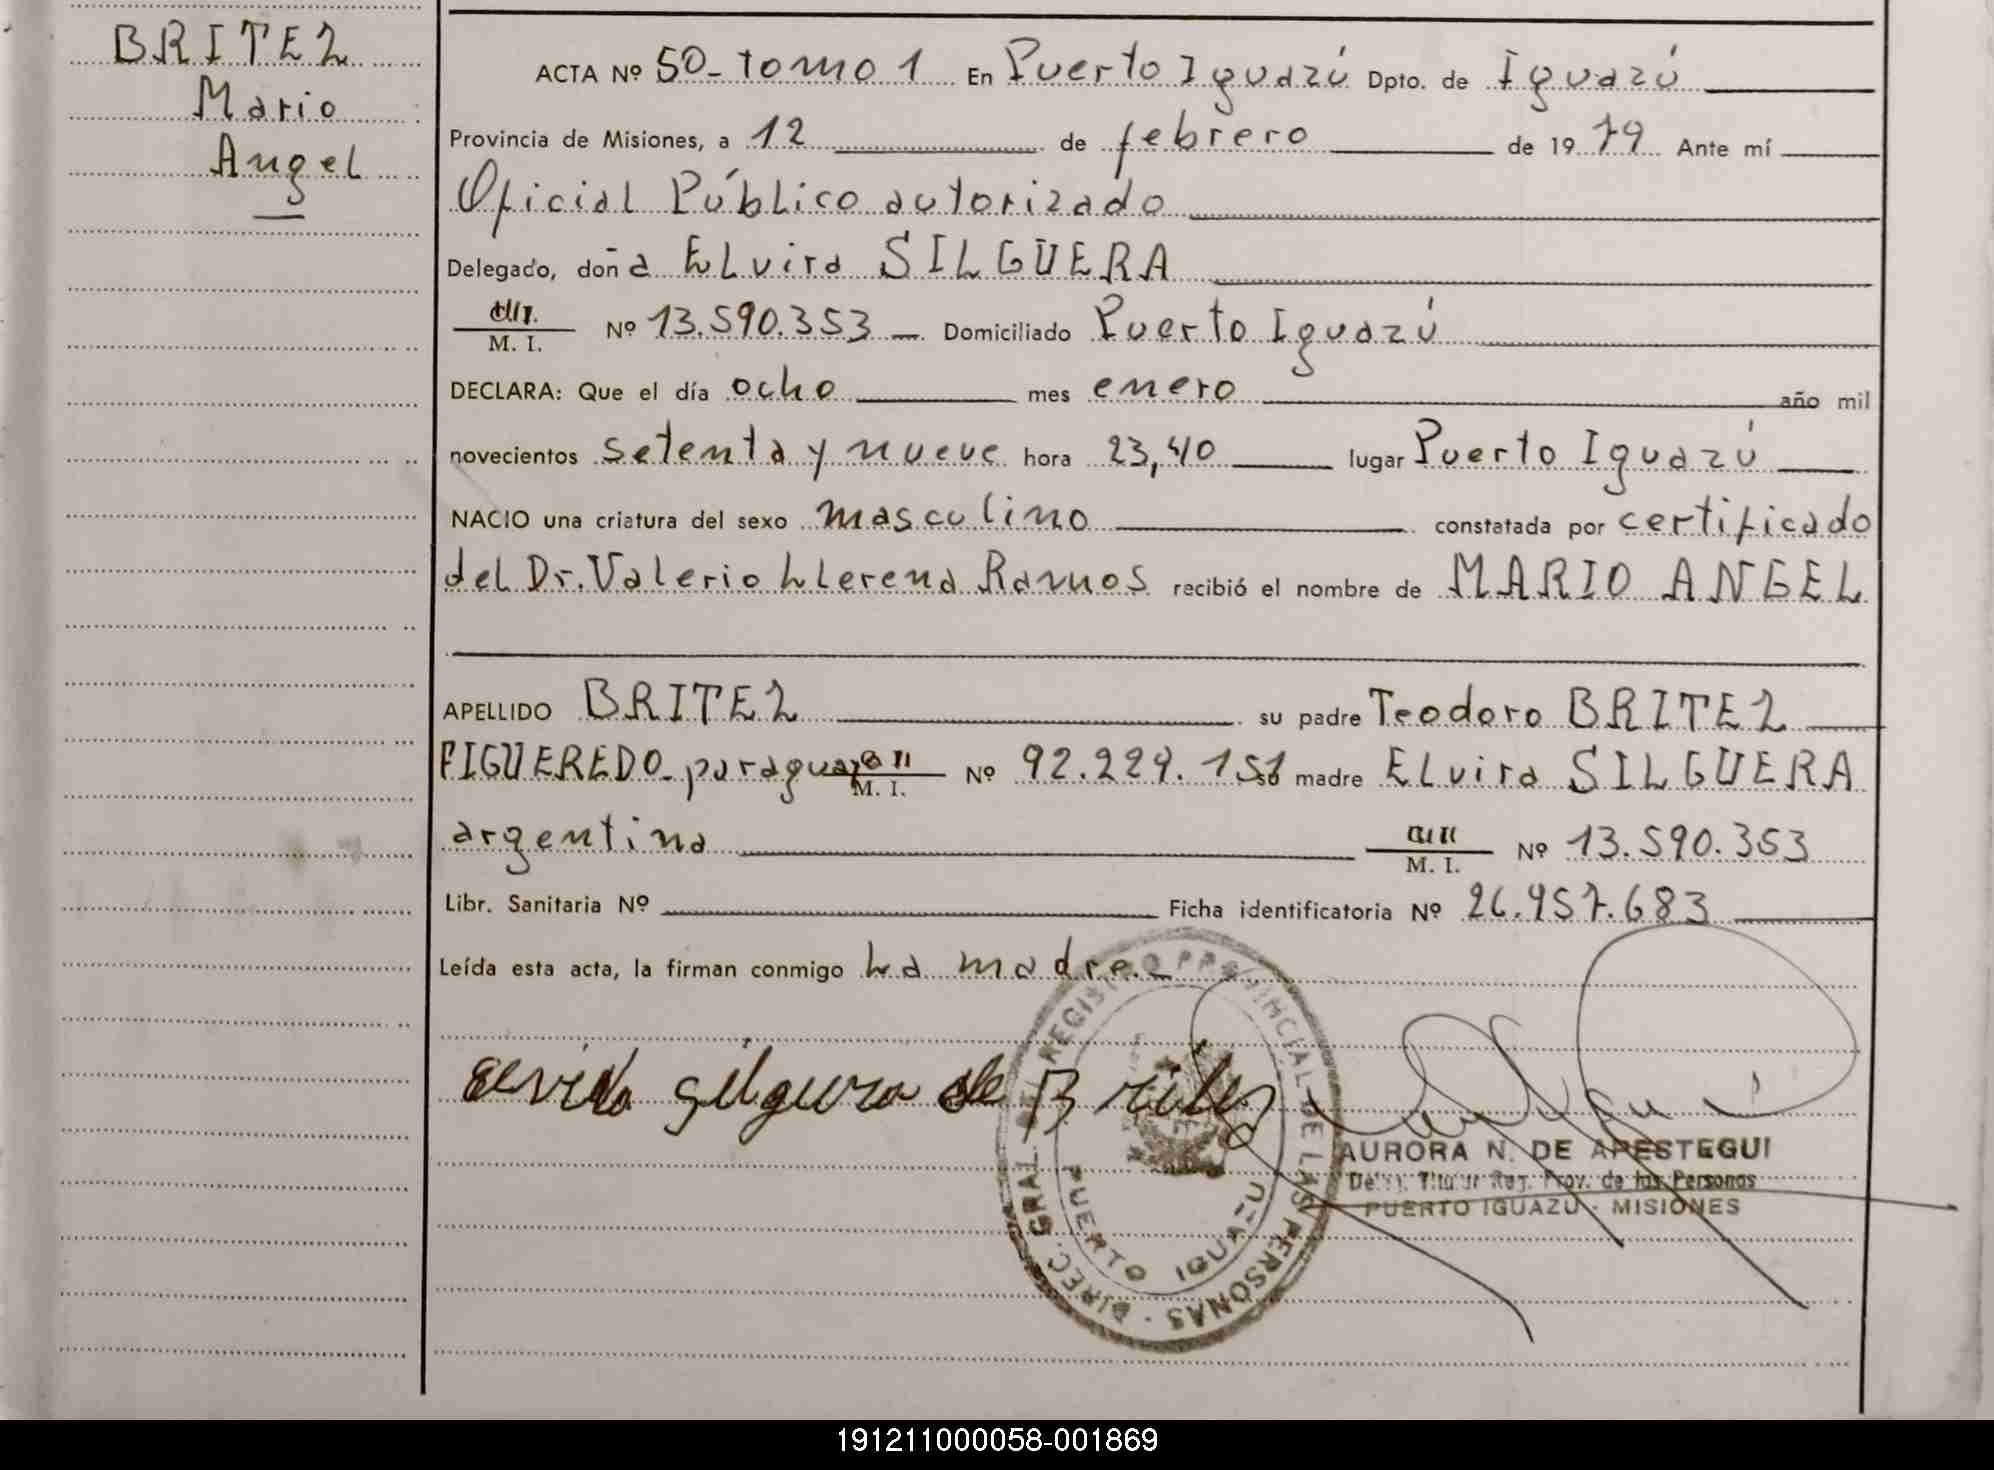 BRITEZ
Mario
Angel
ACTA Nº 50- tomo 1 En Puerto Iguazú Dpto. de Iguazú
Provincia de Misiones, a 12 de febrero de 1979 Ante mí
Oficial Público autorizado
Delegado, doña ELvira SILGUERA
M. I. Nº 13.590.353 Domiciliado Puerto Iguazú
DECLARA: Que el día ocho mes enero año mil
novecientos setenta y nueve hora 23,40 lugar Puerto Iguazú
NACIO una criatura del sexo masculino constatada por certificado
del Dr. Valerio LLerena Ramos recibió el nombre de MARIO ANGEL
APELLIDO BRITEZ su padre Teodoro BRITEZ
FIGUEREDO- paraguayo M. I. Nº 92.229.151 su madre ELvira SILGUERA
argentina M. I. Nº 13.590.353
Libr. Sanitaria Nº Ficha identificatoria Nº 26.957.683
Leída esta acta, la firman conmigo La madre.-
elvida silguera de Britez
DIREC. GRAL. DEL REGISTRO PROVINCIAL DE LAS PERSONAS
PUERTO IGUAZU
AURORA N. DE APESTEGUI
Deleg. Titular Reg. Prov. de las Personas
PUERTO IGUAZU - MISIONES
191211000058-001869